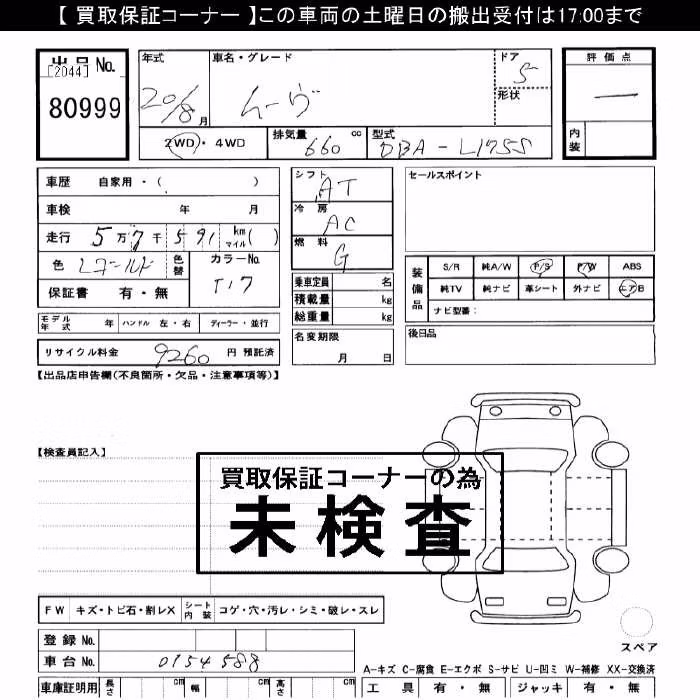 【 買取保証コーナー 】この車両の土曜日の搬出受付は17:00まで
出品 No.
[2044]
80999
年式
20/8 月
車名・グレード
ムーヴ
ドア
5
形状
評価点
ー
内装
2WD・4WD
排気量 660 cc
型式 DBA-L175S
車歴 自家用・( )
車検 年 月
走行 5万7千591 km マイル( )
色 Lゴールド
色替
カラーNo.
T17
保証書 有・無
シフト
AT
冷房
AC
燃料
G
乗車定員 名
積載量 kg
総重量 kg
名変期限
月 日
セールスポイント
装備品
S/R 純A/W P/S P/W ABS
純TV 純ナビ 革シート 外ナビ エアB
ナビ型番：
後日品
モデル年式 年 ハンドル 左・右 ディーラー・並行
リサイクル料金 9260 円 預託済
【出品店申告欄(不良箇所・欠品・注意事項等)】
【検査員記入】
買取保証コーナーの為
未検査
FW キズ・トビ石・割レX
シート内装 コゲ・穴・汚レ・シミ・破レ・スレ
登録 No.
車台 No. 0154588
スペア
A-キズ C-腐食 E-エクボ S-サビ U-凹ミ W-補修 XX-交換済
車庫証明用 長さ cm 幅 cm 高さ cm
工具 有・無 ジャッキ 有・無